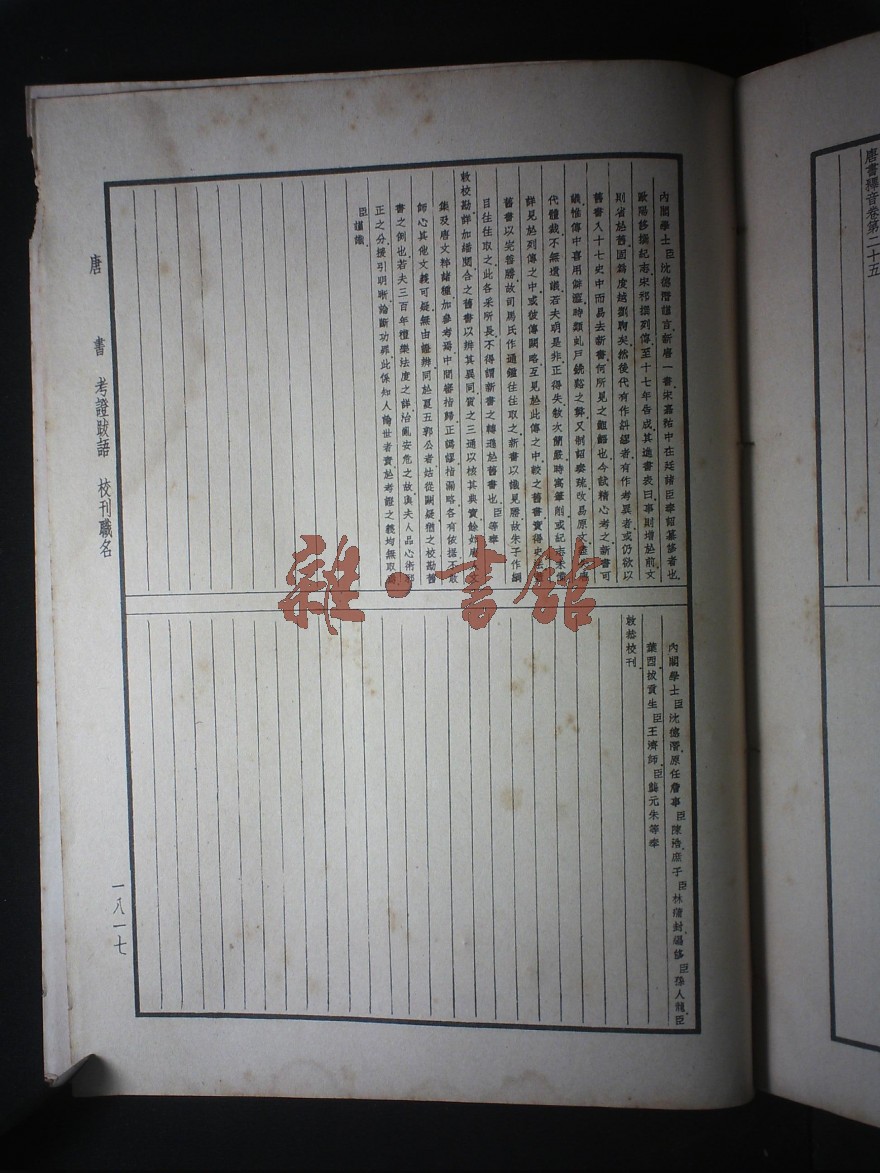 唐書釋音卷第二十五
內閣學士臣沈德潛謹言新唐一書宋嘉祐中在廷諸臣奉詔纂修者也
歐陽修撰紀志宋祁撰列傳至十七年告成其進書表曰事則增於前文
則省於舊固爲度越劉昫矣然後代有作糾謬者有作考異者或仍欲以
舊書入十七史中而易去新書何所見之齟齬也今試精心考之新書可
議惟傳中喜用僻澀時類虬戶銑谿之弊又制詔奏疏改易原文
代體裁不無遺議若夫明是非正得失敘次簡嚴時寓筆削或記志未備
詳見於列傳之中或彼傳闕略互見於此傳之中較之舊書實得史法
舊書以完善勝故司馬氏作通鑑往往取之新書以識見勝故朱子作綱
目往往取之此各采所長不得謂新書之轉遜於舊書也臣等奉
敕校勘詳加繙閱合之舊書以辨其異同質之三通以核其典實餘如唐文
鑑及唐文粹諸種加參考焉中間審指歸正譌謬指漏略各有依據不敢
師心其他文義可疑無由證辨同於夏五郭公者姑從闕疑猶之校勘舊
書之例也若夫三百年禮樂法度之詳治亂安危之故與夫人品心術邪
正之分援引明晰論斷功罪此係知人論世者實於考證之義均無取焉
臣謹識
內閣學士臣沈德潛原任詹事臣陳浩庶子臣林蒲封編修臣孫人龍臣
葉酉拔貢生臣王濟師臣龔元朱等奉
敕恭校刊
唐書 考證跋語 校刊職名
一八一七
雜·書館